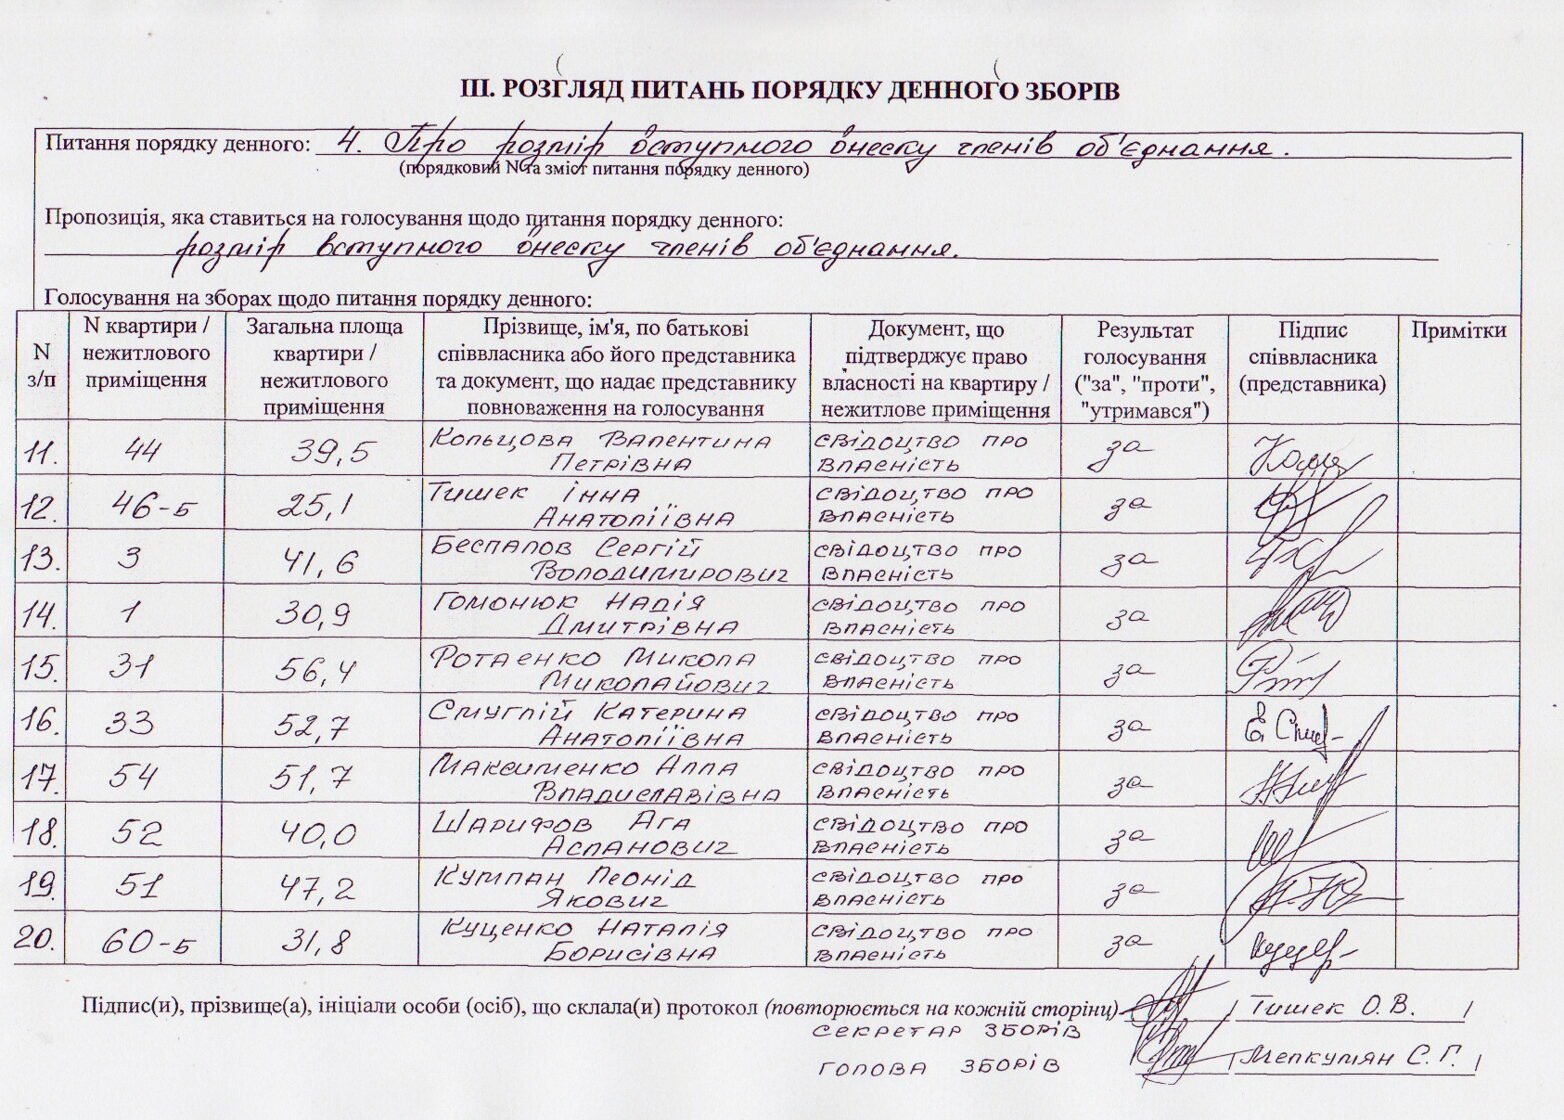 III. РОЗГЛЯД ПИТАНЬ ПОРЯДКУ ДЕННОГО ЗБОРІВ
Питання порядку денного: 4. Про розмір вступмого внеску членів об'єднання.
(порядковий N та зміст питання порядку денного)
Пропозиція, яка ставиться на голосування щодо питання порядку денного:
розмір вступного внеску членів об'єднання.
Голосування на зборах щодо питання порядку денного:
N з/п N квартири / нежитлового приміщення Загальна площа квартири / нежитлового приміщення Прізвище, ім'я, по батькові співвласника або його представника та документ, що надає представнику повноваження на голосування Документ, що підтверджує право власності на квартиру / нежитлове приміщення Результат голосування ("за", "проти", "утримався") Підпис співвласника (представника) Примітки
11. 44 39,5 Кольцова Валентина Петрівна свідоцтво про власність за
12. 46-Б 25,1 Тишек Інна Анатоліївна свідоцтво про власність за
13. 3 41,6 Беспалов Сергій Володимирович свідоцтво про власність за
14. 1 30,9 Гомонюк Надія Дмитрівна свідоцтво про власність за
15. 31 56,4 Ротаенко Микола Миколайович свідоцтво про власність за
16. 33 52,7 Смуглій Катерина Анатоліївна свідоцтво про власність за
17. 54 51,7 Максименко Алла Владиславівна свідоцтво про власність за
18. 52 40,0 Шарифов Ага Асланович свідоцтво про власність за
19. 51 47,2 Култан Леонід Якович свідоцтво про власність за
20. 60-Б 31,8 Куценко Наталія Борисівна свідоцтво про власність за
Підпис(и), прізвище(а), ініціали особи (осіб), що склала(и) протокол (повторюється на кожній сторінці) / Тишек О.В. /
секретар зборів
голова зборів / Мелкумян С.Г. /